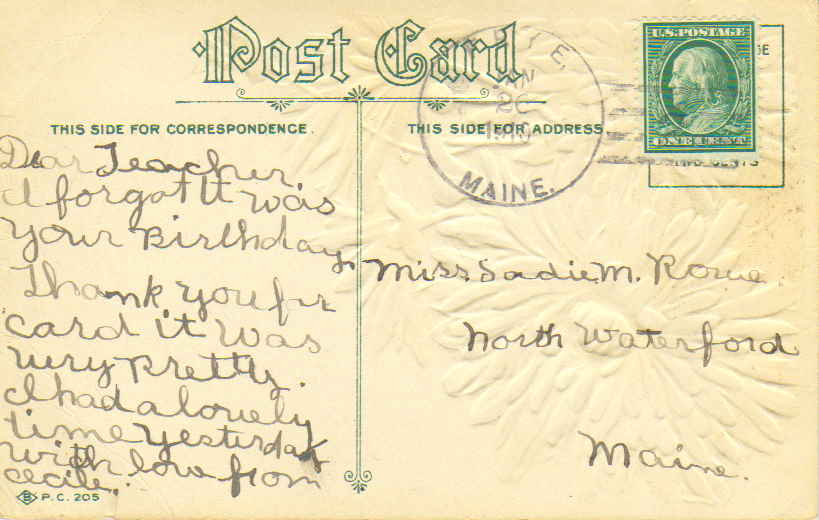 Post Card
THIS SIDE FOR CORRESPONDENCE.
THIS SIDE FOR ADDRESS
U.S. POSTAGE
ONE CENT
MAINE.
Dear Teacher
I forgot It was
your Birthday.
Thank you for
card it was
very pretty.
I had a lovely
time yesterday
with love from
Cecile.
Miss Sadie M. Rowe
North Waterford
Maine.
P.C. 205